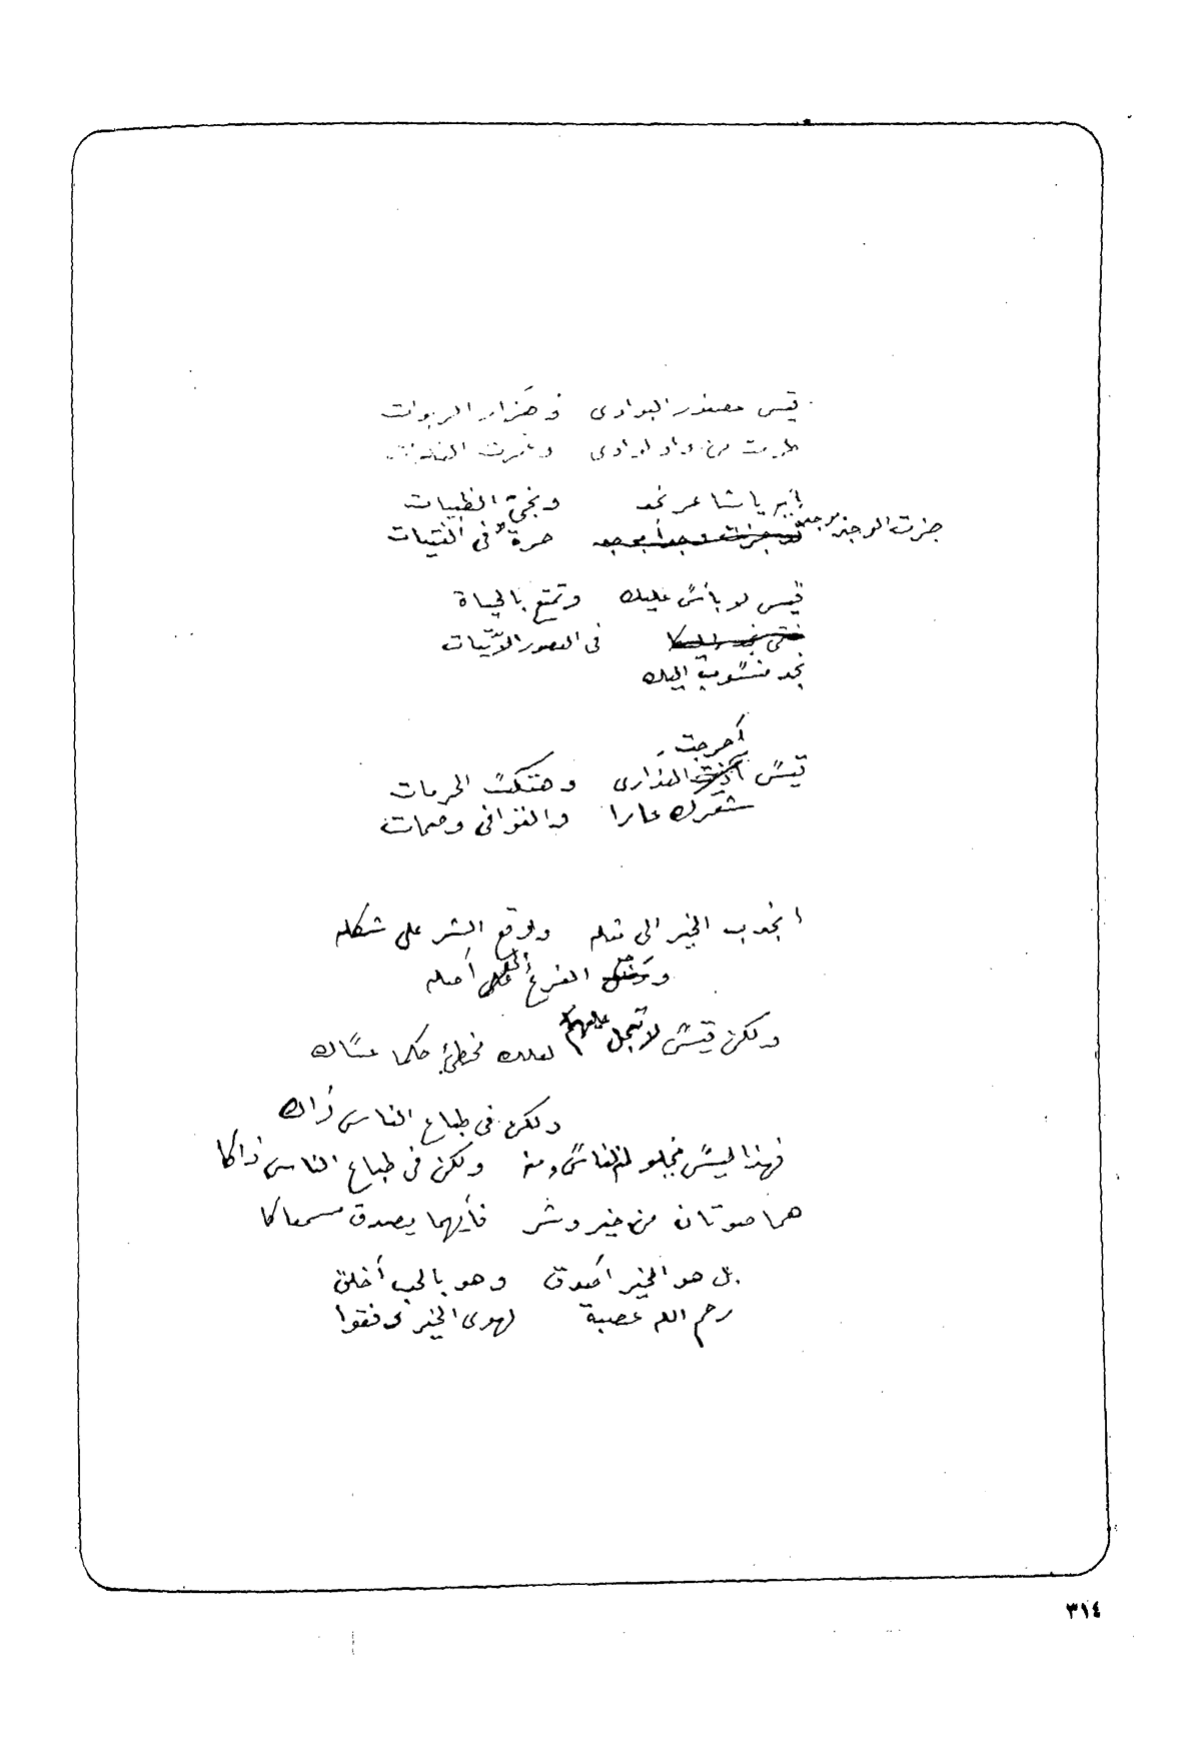 قيس عصفور البوادى وهزار الربوات
طرت من واد لوادى وغمرت الفلوات
إيه يا شاعر نجد ونجى الظبيات
جزت الوجد بوجد حرة فى الفتيات
قيس لا بأس عليك وتمتع بالحياة
فى العصور الآتيات
نجد منسوب اليك
أحرجت
قيس العذارى وهتكت الحرمات
شعرك عارا والقوافى وصمات
انجذب الخير الى مثله ووقع الشر على شكله
الفرع أصله
ولكن قيس لا تعجل عليهم لعلك مخطئ حكما عساك
ولكن فى طباع الناس ذاك
فهذا ليس يخلو الناس منه ولكن فى طباع الناس ذاكا
هما صوتان من خير وشر فأيهما يصدق مسمعاكا
بل هو الخير أصدق وهو بالحب أخلق
رحم الله عصبة لهوى الخير وفقوا
٣١٤